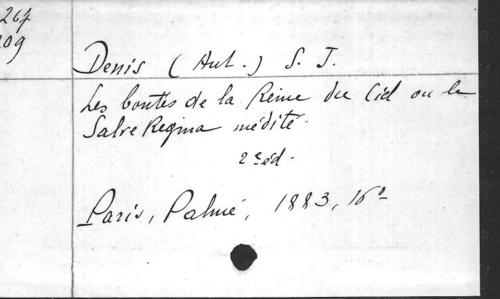 267
109
Denis (Ant.) S. J.
Les bontés de la Reine du Ciel ou le
Salve Regina médité.
2e éd.
Paris, Palmé, 1883, 16°